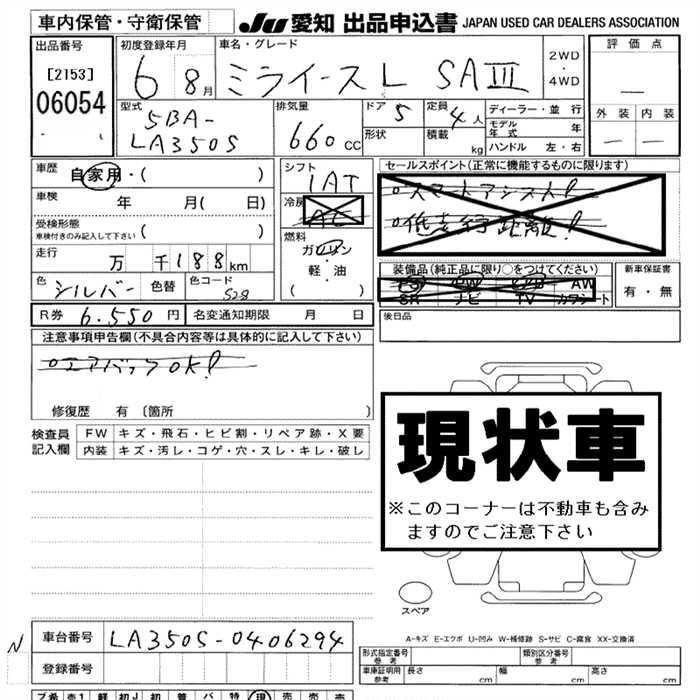 車内保管・守衛保管
JU 愛知 出品申込書 JAPAN USED CAR DEALERS ASSOCIATION
出品番号
[2153]
06054
初度登録年月
6 8月
車名・グレード
ミライース L SAⅢ
2WD
・
4WD
評価点
—
外装 内装
— —
型式
5BA-
LA350S
排気量
660 cc
ドア 5
形状
定員 4人
積載 kg
ディーラー・並行
モデル年式 年
ハンドル 左・右
車歴
自家用・( )
車検 年 月( 日)
受検形態
車検付きのみ記入して下さい ( )
走行 万 千188km
色 シルバー 色替 色コード S28
シフト
1AT
冷房
AC
燃料
ガソリン
・
軽・油
( )
セールスポイント(正常に機能するものに限ります)
○スマートアシスト!
○低走行距離!
装備品(純正品に限り○をつけてください)
PS PW エアB AW
SR ナビ TV カワシート
新車保証書
有・無
R券 6.550円 名変通知期限 月 日
後日品
注意事項申告欄(不具合内容等は具体的に記入して下さい)
○エアバックOK!
修復歴 有 〔箇所 〕
検査員
記入欄
FW キズ・飛石・ヒビ割・リペア跡・X要
内装 キズ・汚レ・コゲ・穴・スレ・キレ・破レ
現状車
※このコーナーは不動車も含み
ますのでご注意下さい
スペア
A-キズ E-エクボ U-凹み W-補修跡 S-サビ C-腐食 XX-交換済
N
車台番号 LA350S-0406294
登録番号
形式指定番号
参考
類別区分番号
参考
車庫証明用
参考
長さ cm 幅 cm 高さ cm